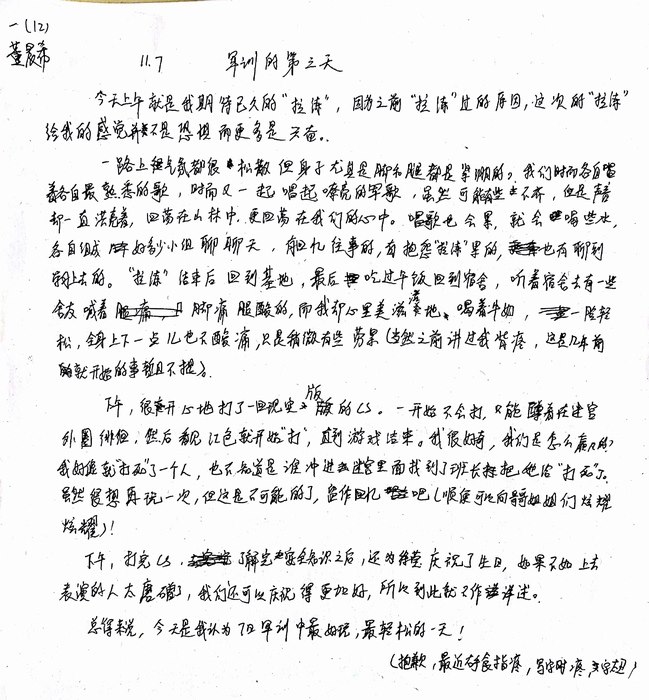 一(12)
董晨希
11.7 军训的第三天
今天上午就是我期待已久的“拉练”，因为之前“拉练”过的原因，这次的“拉练”
给我的感觉并不是恐惧而更多是兴奋。
一路上气氛都很松散但身子尤其是脚和腿都是紧绷的，我们时而各自唱
着各自最熟悉的歌，时而又一起唱起嘹亮的军歌，虽然可能些不齐，但是声音
却一直活着，回荡在山林中，更回荡在我们的心中。唱歌也会累，就会喝些水，
各自组成好多小组聊聊天，有回忆往事的，有抱怨“拉练”累的，也有聊到
晚上去的。“拉练”结束后回到基地，最后吃过午饭回到宿舍，听着宿舍去有一些
舍友喊着脚痛腿酸的，而我却心里美滋滋地喝着牛奶，一陉轻
松，全身上下一点儿也不酸痛，只是稍微有些劳累(当然之前讲过我背疼，这是几年前
就开始的事暂且不提)。
下午，很开心地打了一回现实版的CS。一开始不会打，只能蹲着在迷宫
外围徘徊，然后看见红色就开始“打”，直到游戏结束。我很好奇，我们是怎么赢的？
我好像就“打死”了一个人，也不知道是谁冲进迷宫里面找到了班长并把她给“打死”了。
虽然很想再玩一次，但这是不可能的了，留作回忆吧(顺便可以向哥哥姐姐们炫耀
炫耀)！
下午，打完CS，了解完安全知识之后，还为徐莹庆祝了生日，如果不如上去
表演的人太磨蹭了，我们还可以庆祝得更加好，所以到此就不作详述。
总得来说，今天是我认为7日军训中最好玩，最轻松的一天！
(抱歉，最近右手食指疼，写字时疼，字超)